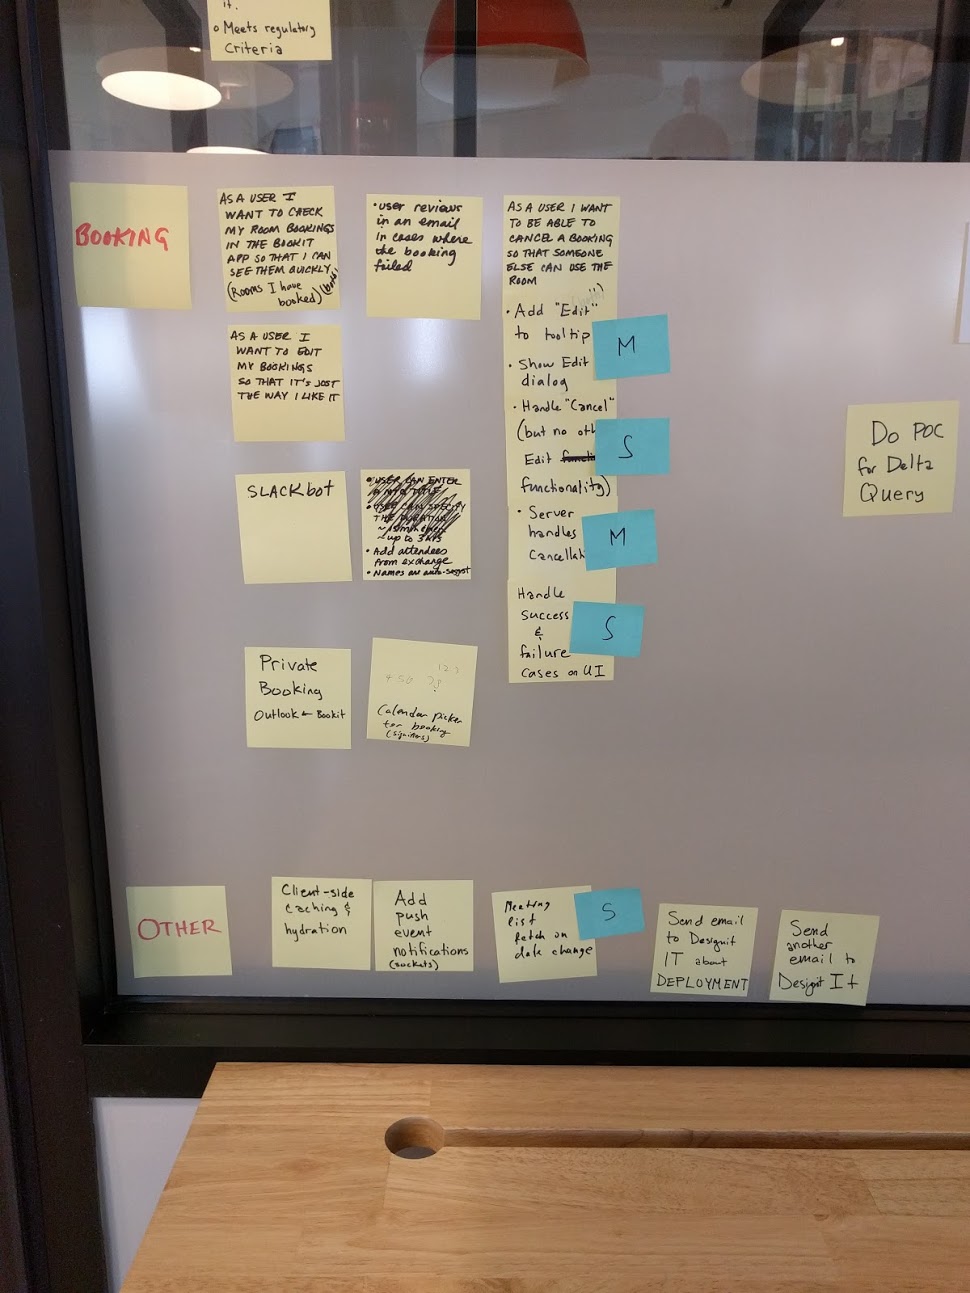 it.
o Meets regulatory
Criteria
BOOKING
AS A USER I
WANT TO CHECK
MY ROOM BOOKINGS
IN THE BOOKIT
APP SO THAT I CAN
SEE THEM QUICKLY
(Rooms I have
booked)
• user reviews
in an email
in cases where
the booking
failed
AS A USER I WANT
TO BE ABLE TO
CANCEL A BOOKING
SO THAT SOMEONE
ELSE CAN USE THE
ROOM
• Add "Edit"
to tooltip
M
• Show Edit
dialog
• Handle "Cancel"
(but no oth
Edit
functionality)
S
• Server
handles
Cancellati
M
Handle
Success
&
failure
cases on UI
S
AS A USER I
WANT TO EDIT
MY BOOKINGS
SO THAT IT'S JUST
THE WAY I LIKE IT
Do POC
for Delta
Query
SLACKbot
• USER CAN ENTER
TITLE
• USER CAN SPECIFY
THE DURATION
~ up to 3 hrs
• Add attendees
from exchange
• Names are auto-
Private
Booking
Outlook ← Bookit
1 2 3
4 5
Calendar picker
for booking
OTHER
Client-side
caching &
hydration
Add
push
event
notifications
(sockets)
Meeting
list
fetch on
date change
S
Send email
to Designit
IT about
DEPLOYMENT
Send
another
email to
Designit It